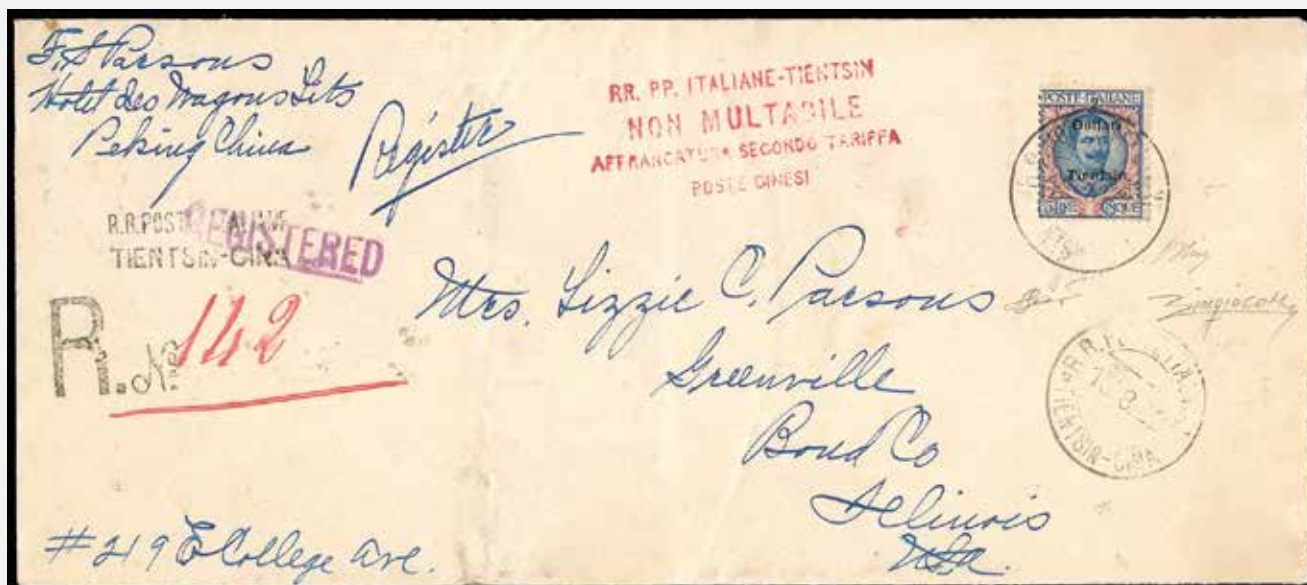 F. S Parsons
Hotel des Wagons Lits
Peking China
Register
RR. PP. ITALIANE-TIENTSIN
NON MULTABILE
AFFRANCATURA SECONDO TARIFFA
POSTE CINESI
POSTE ITALIANE
Dollari
Tientsin
R.R. POSTE ITALIANE
TIENTSIN-CINA
REGISTERED
R. No 142
Mrs. Lizzie C. Parsons
Greenville
Bond Co
Illinois
USA.
TIENTSIN-CINA
#219 E College Ave.